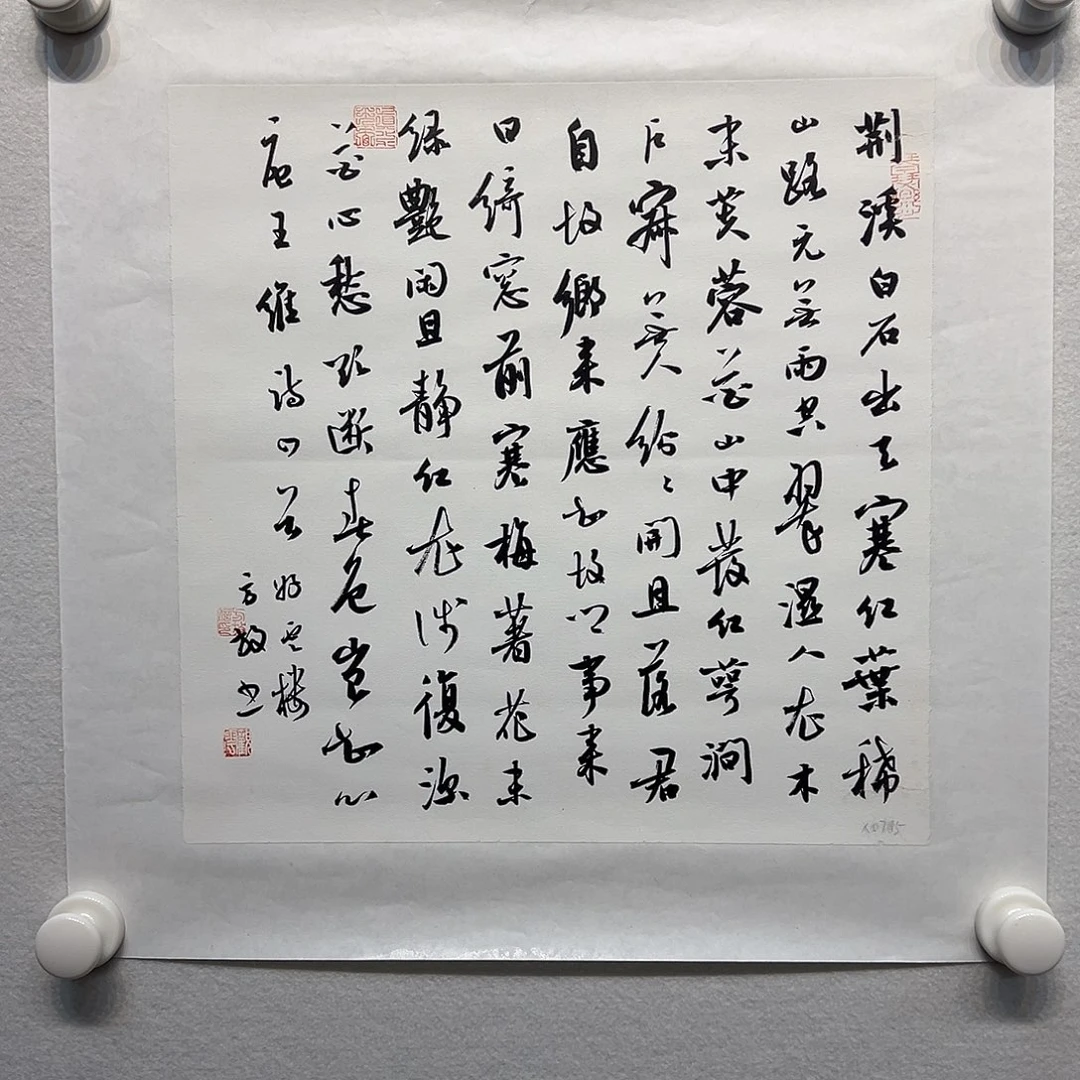 荆溪白石出天寒红葉稀
山路元無雨空翠濕人衣木
末芙蓉花山中發红萼澗
户寂無人紛紛開且落君
自故鄉来應知故鄉事来
日綺窓前寒梅著花未
绿艷闲且静红衣浅復深
花心愁欲斷春色豈知心
唐王維詩四首